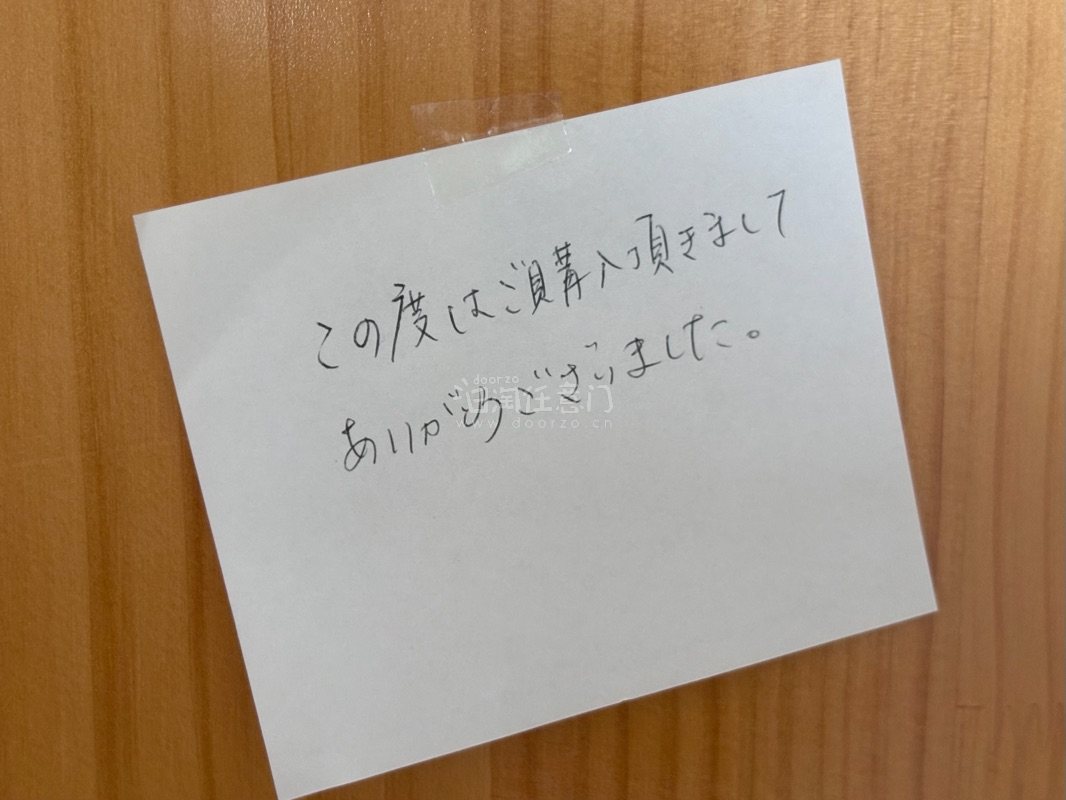 この度はご購入頂きまして
ありがとうございました。
doorzo
日淘任意门
www.doorzo.cn